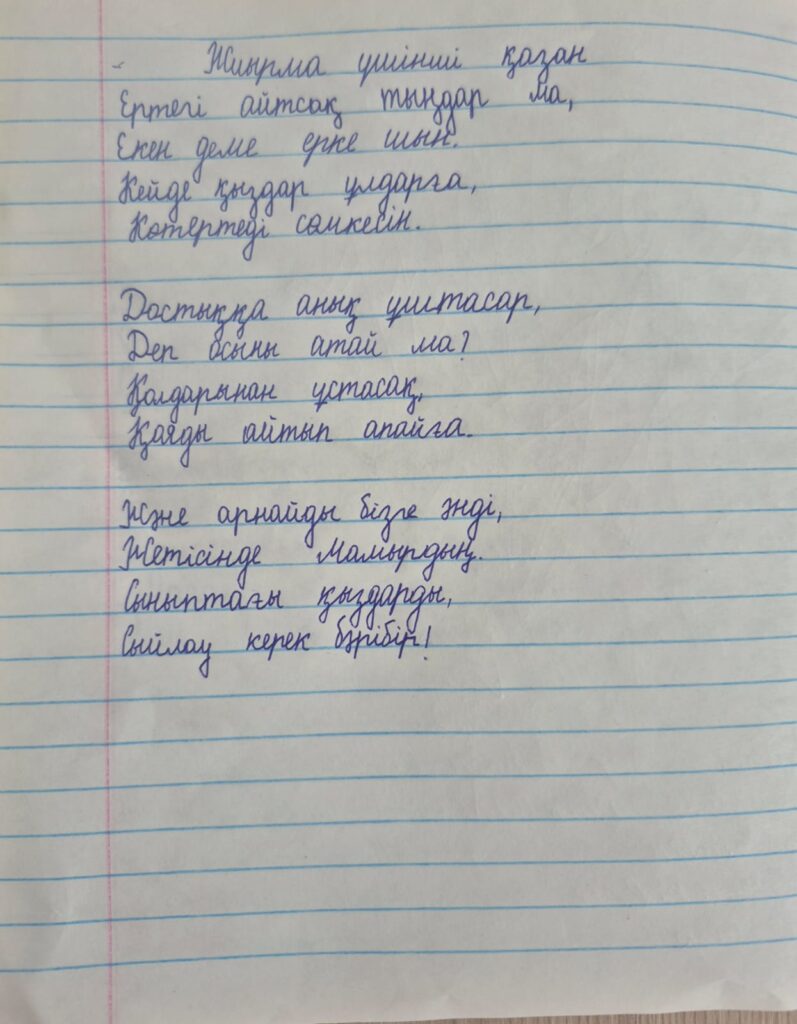 Жиырма үшінші қазан
Ертегі айтсақ тыңдар ма,
Екен деме ерке шын.
Кейде қыздар ұлдарға,
Көтертеді сөмкесін.
Достыққа анық ұштасар,
Деп осыны атай ма?
Қолдарынан ұстасақ,
Қояды айтып апайға.
Және арнайды бізге әнді,
Жетісінде Мамырдың.
Сыныптағы қыздарды,
Сыйлау керек бәрібір!